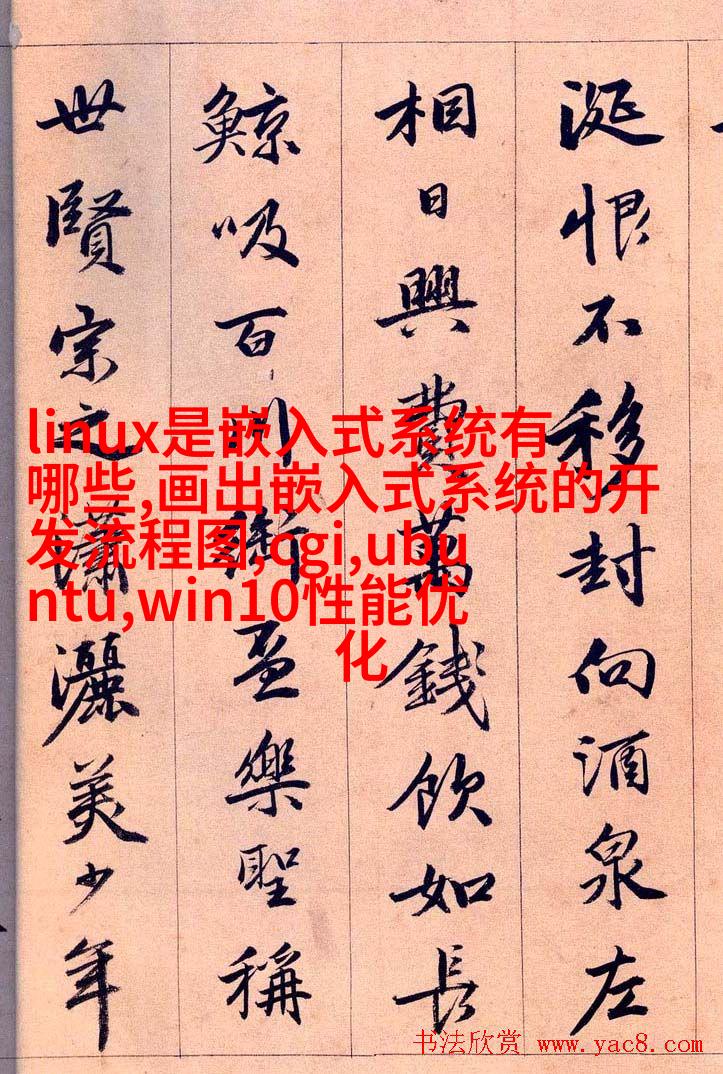 涎恨不移封向酒泉左
相日興費萬錢飲如長
鯨吸百川銜盃樂聖稱
世賢宗之瀟灑美少年
linux是嵌入式系统有
哪些,画出嵌入式系统的开
发流程图,cgi,ubu
ntu,win10性能优
化
书法欣赏 www.yac8.com